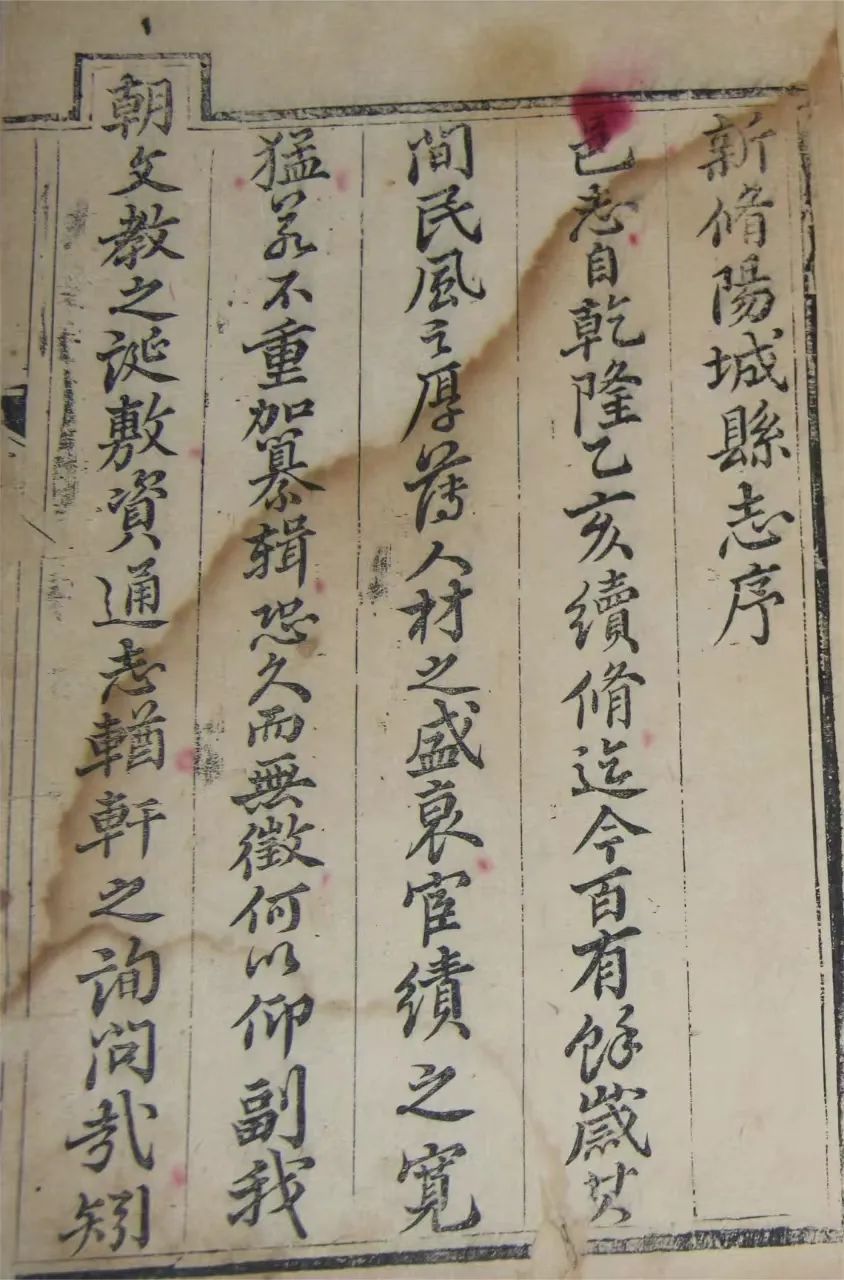 新脩陽城縣志序
邑志自乾隆乙亥續脩迄今百有餘歲其
間民風之厚薄人材之盛衰宦績之寬
猛若不重加纂輯恐久而無徵何以仰副我
朝文教之誕敷資通志輶軒之詢問哉矧